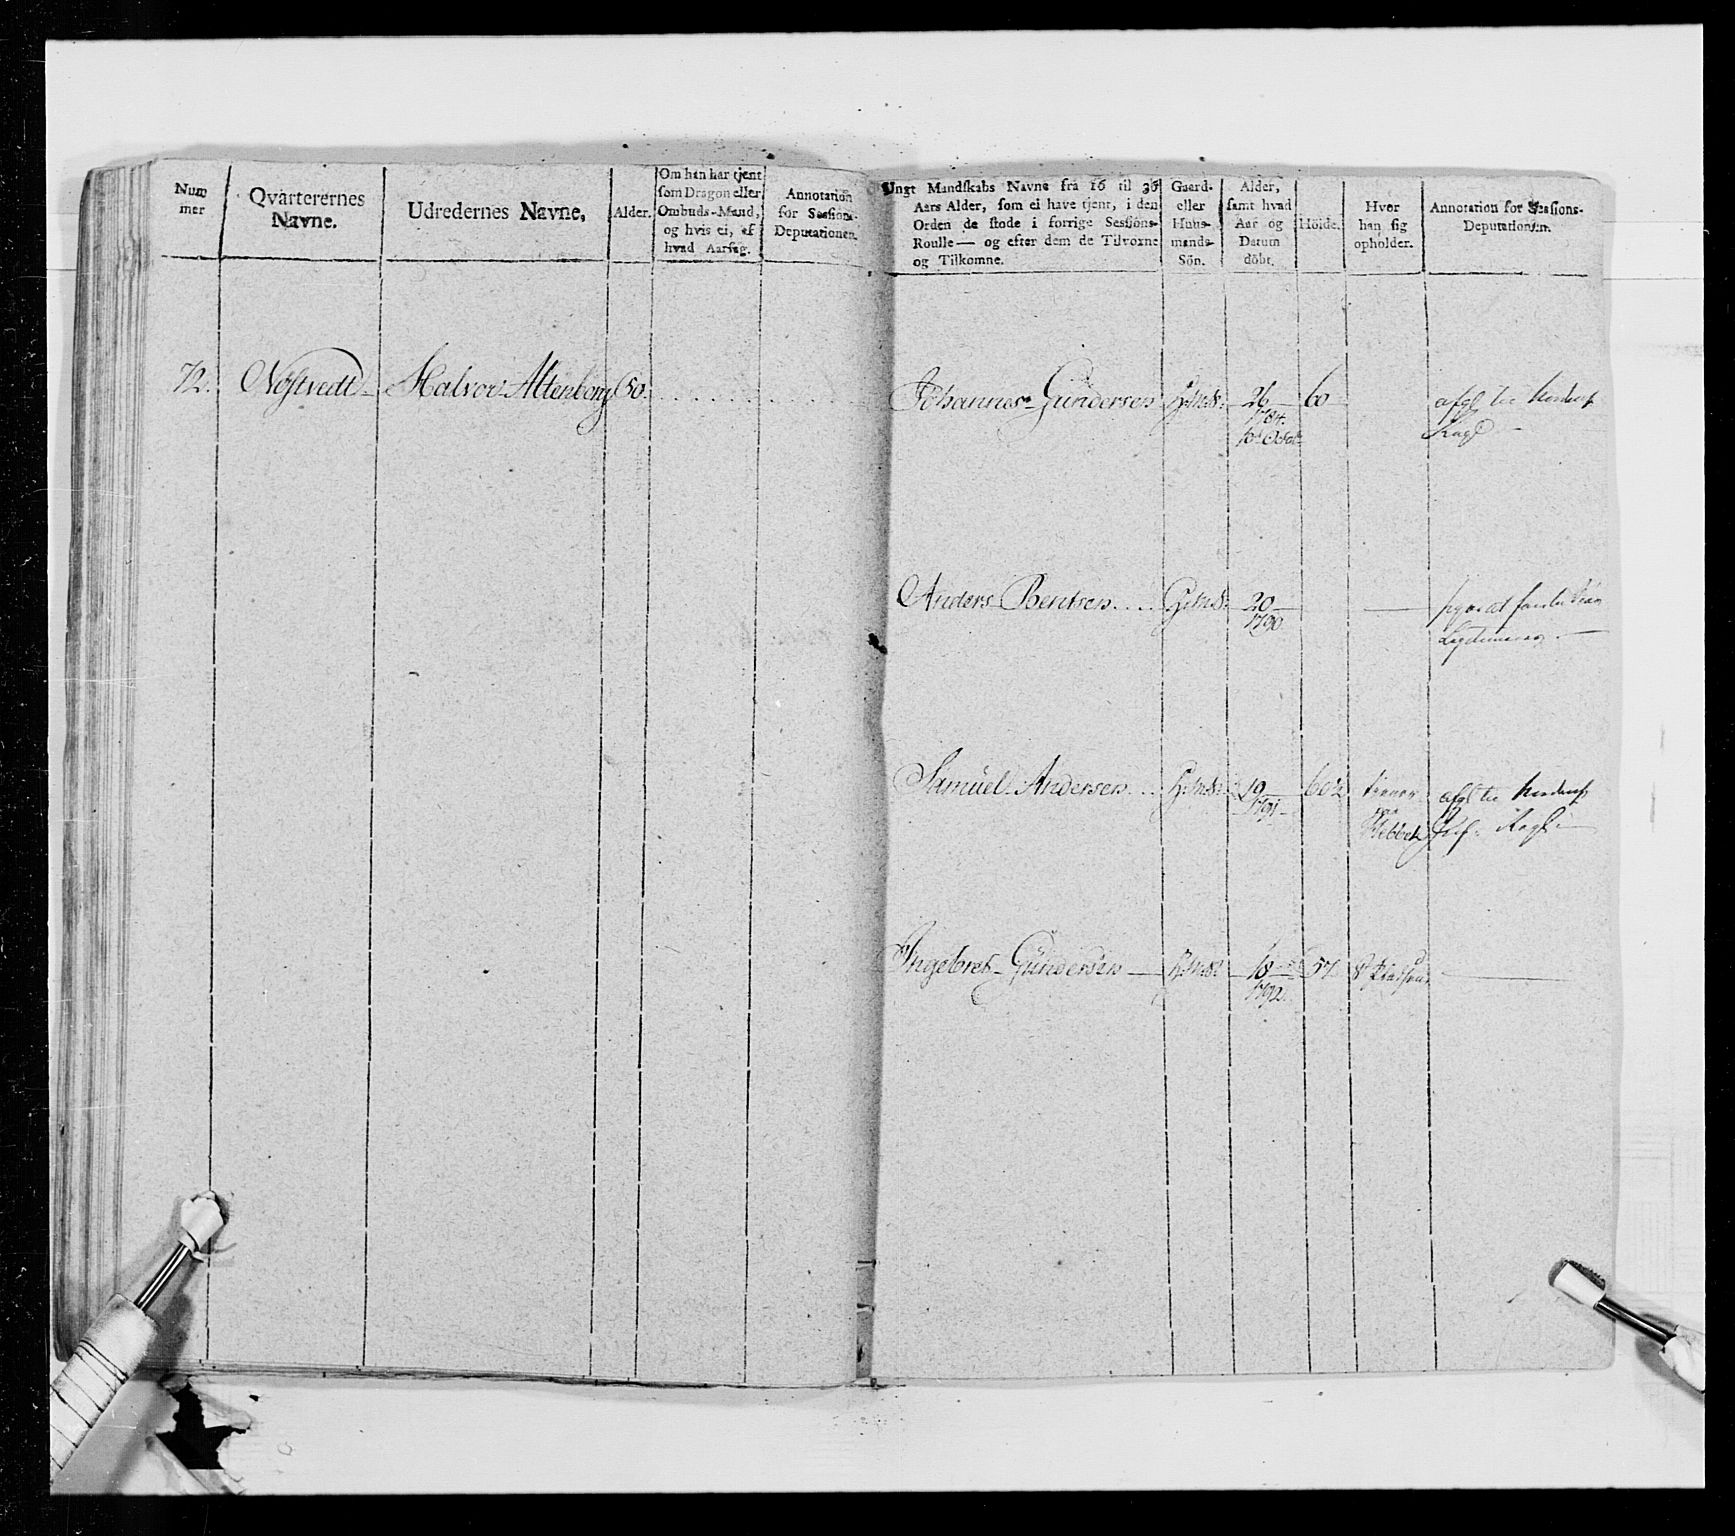 Num
mer
Qvarterernes
Navne.
Udredernes Navne,
Alder.
Om han har tjent
som Dragon eller
Ombuds-Mand,
og hvis ei, af
hvad Aarsag.
Annotation
for Sessions-
Deputationen.
72.
Nøstvedt
Halvor Altenborg
50.
Ungt Mandskabs Navne fra 16 til 36
Aars Alder, som ei have tjent, i den
Orden de stode i forrige Sessions-
Roulle — og efter dem de Tilvoxne
og Tilkomne.
Gaard-
eller
Huus-
mands-
Sön.
Alder,
samt hvad
Aar og
Datum
döbt.
Höide.
Hvor
han sig
opholder.
Annotation for Sessions-
Deputationen.
Johannes Gundersen H:m:S: 26 60 afgl til
1784.
Anders Bentsen G:m:S: 20
1790.
Samuel Andersen H:m:S: 19 60½ tiener afgl til
1791
Ingebret Gundersen H:m:S: 18 57
1792.